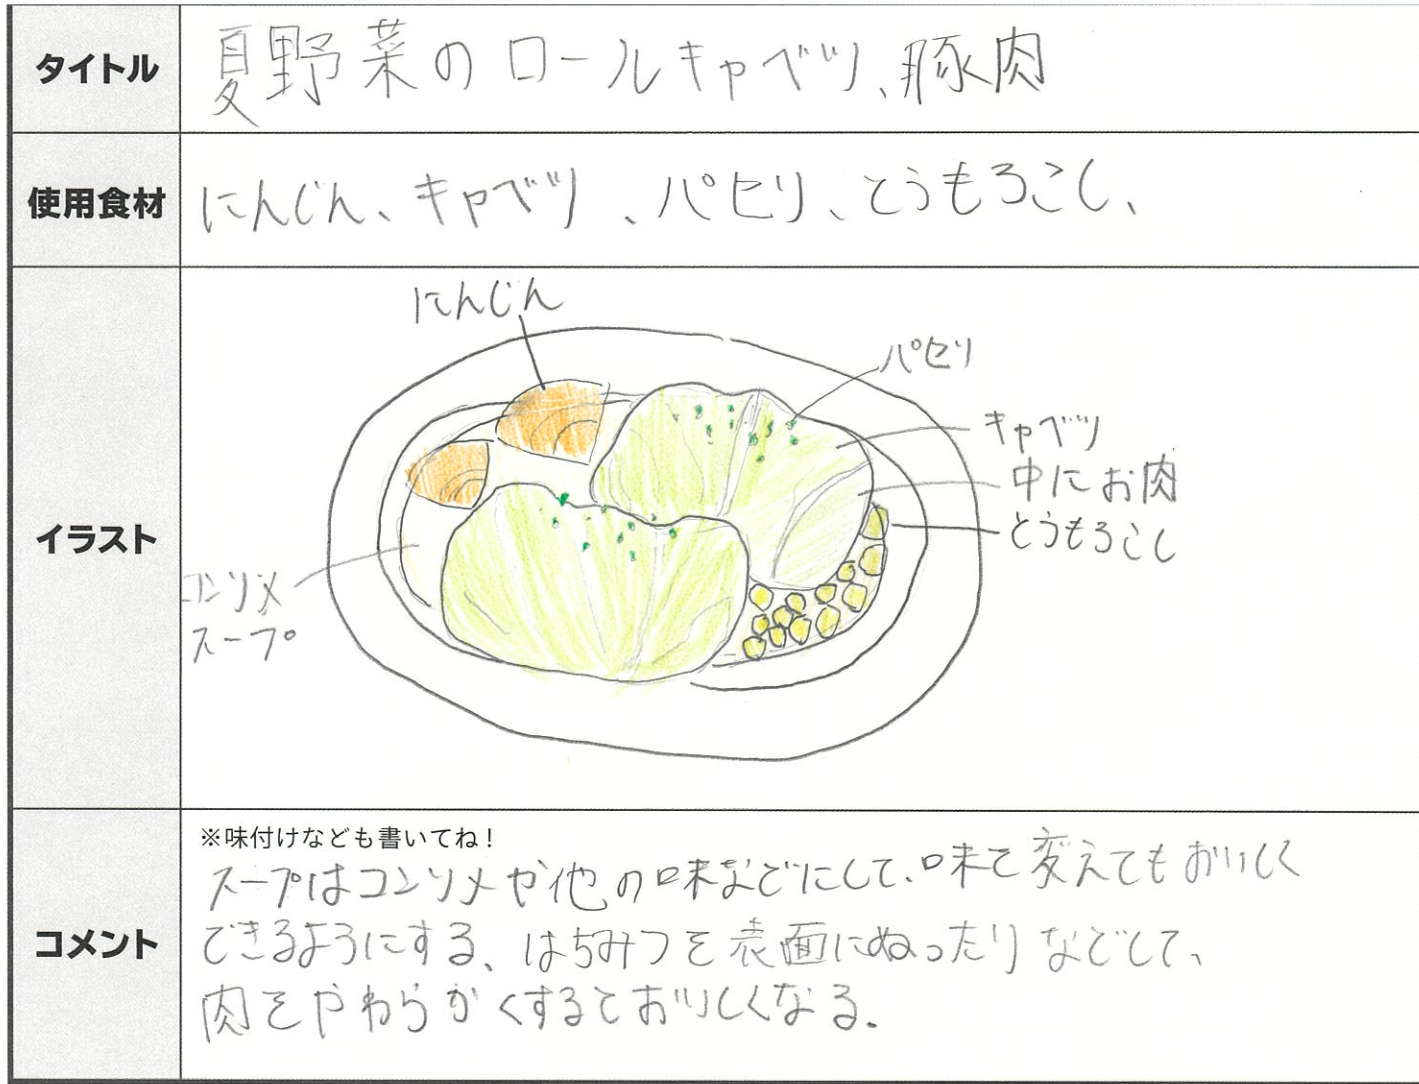 タイトル
夏野菜のロールキャベツ、豚肉
使用食材
にんじん、キャベツ、パセリ、とうもろこし、
イラスト
にんじん
パセリ
キャベツ
中にお肉
とうもろこし
コンソメ
スープ
コメント
※味付けなども書いてね！
スープはコンソメや他の味などにして、味を変えてもおいしく
できるようにする、はちみつを表面にぬったりなどして、
肉をやわらかくするとおいしくなる。